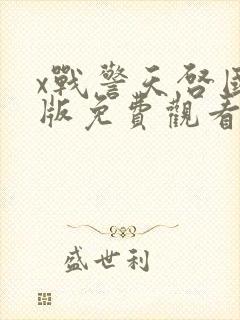 x戰警天啓國
版免費觀看
盛世利